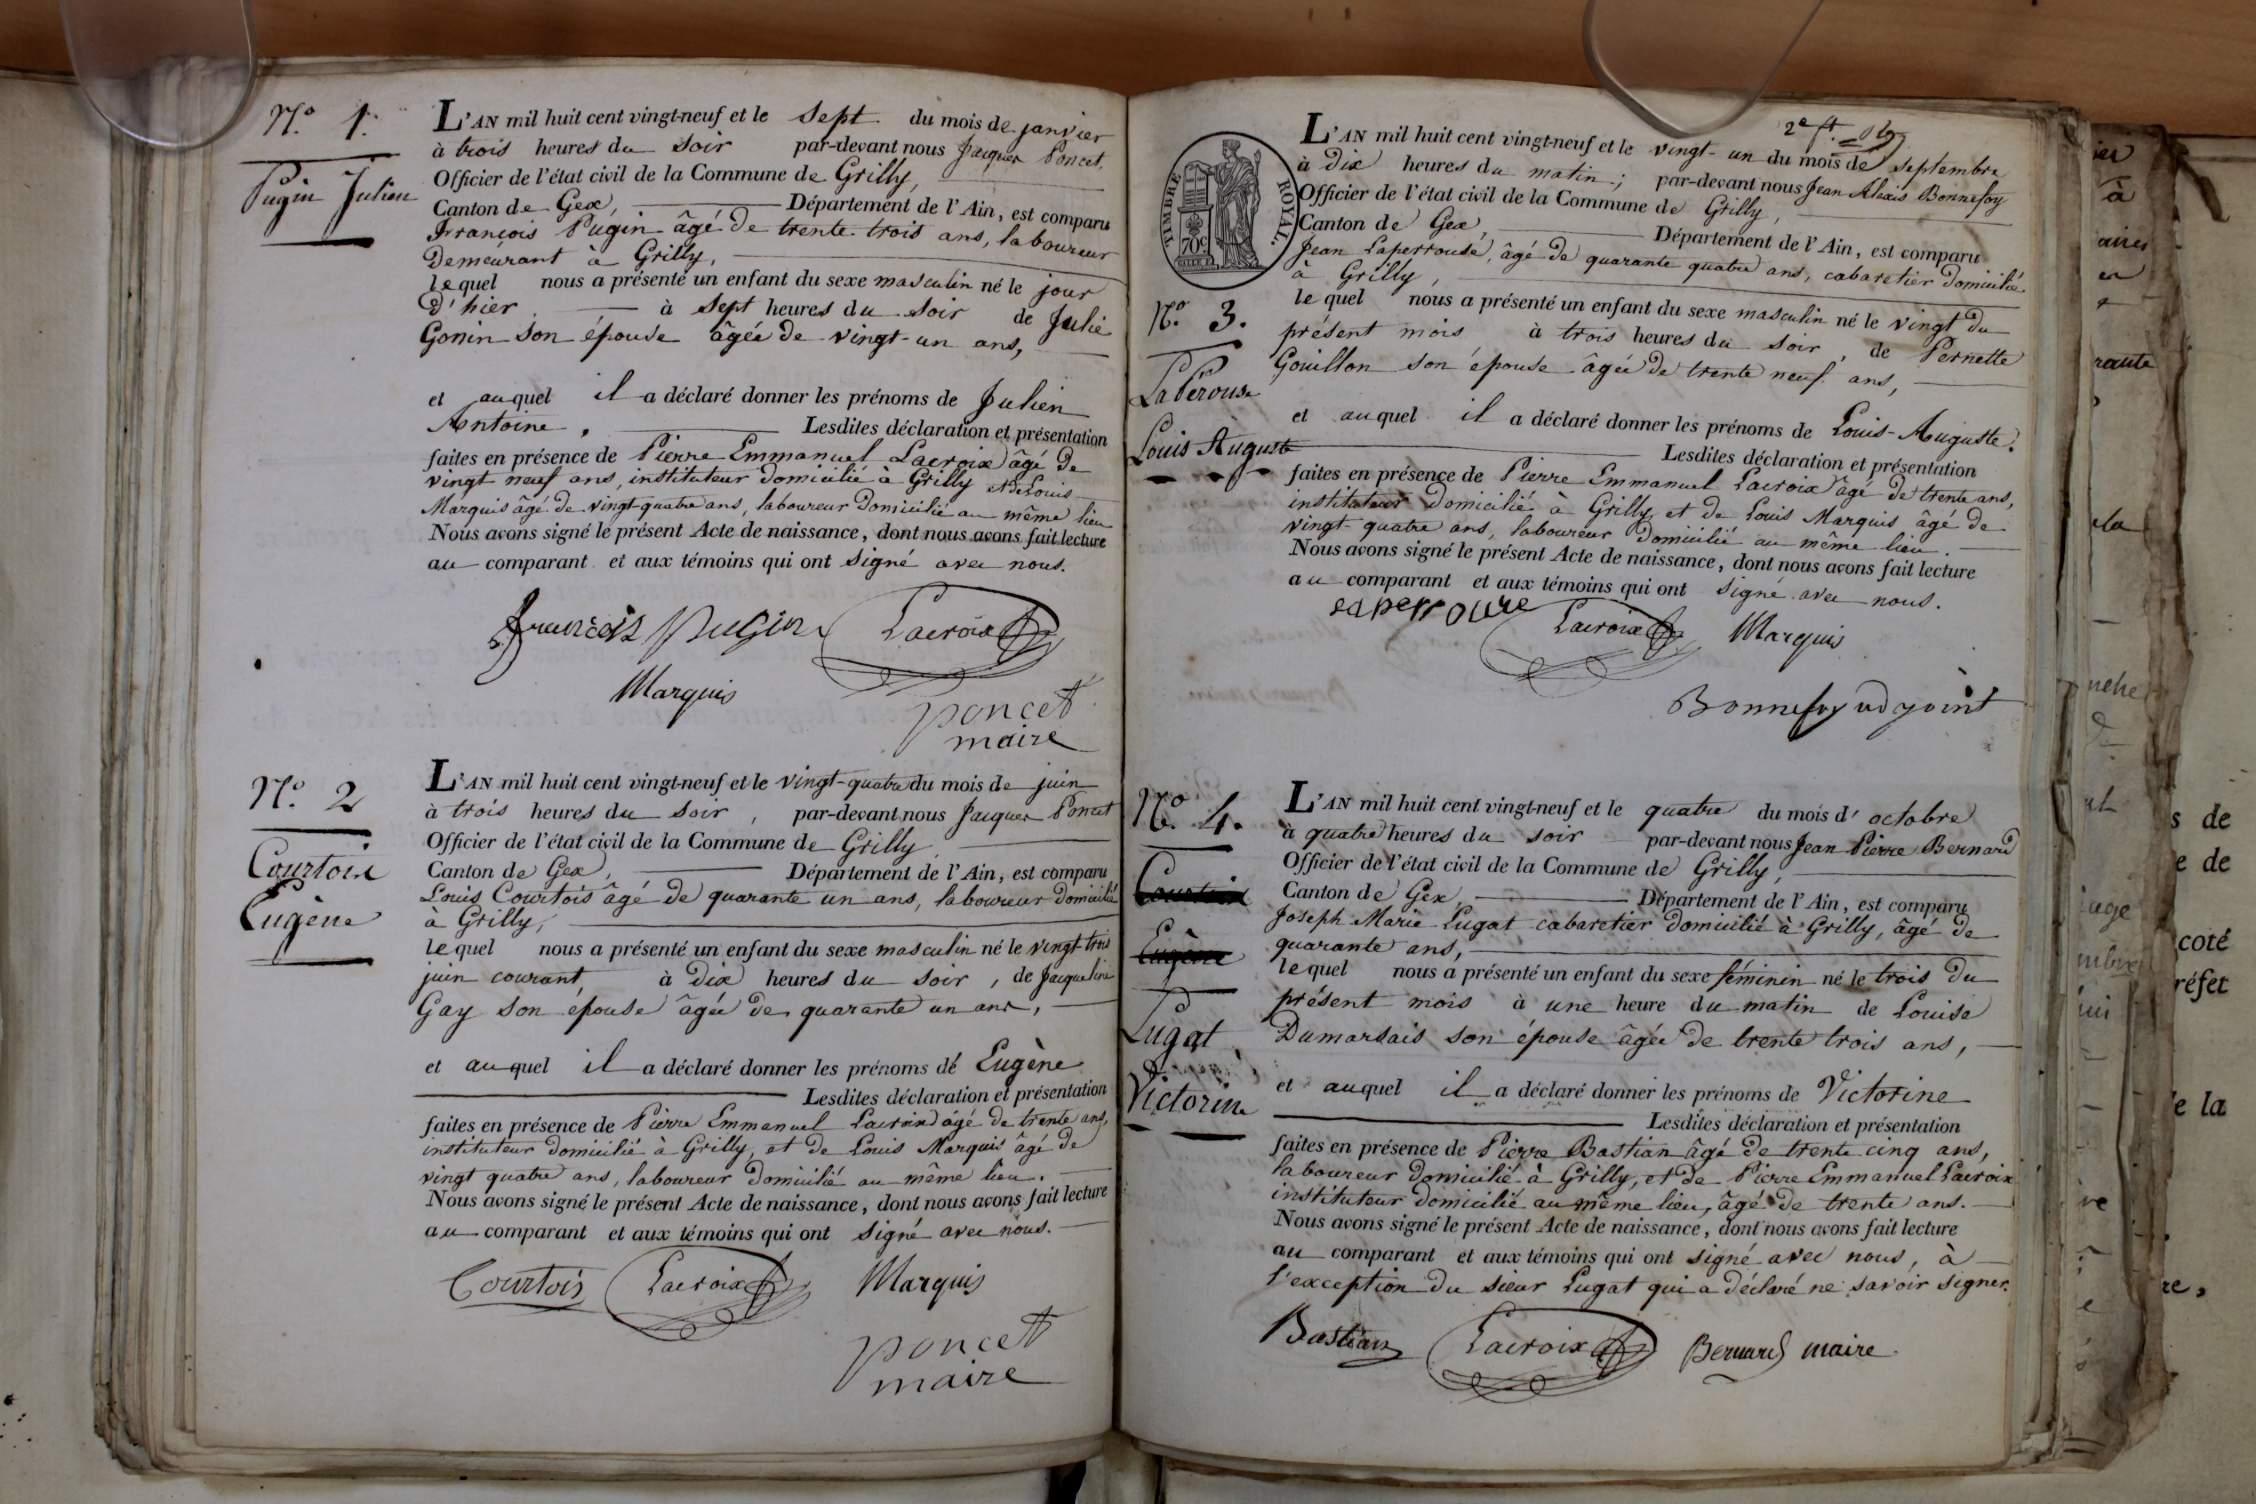 N.º 1.
Pugin Julien
L'AN mil huit cent vingt-neuf et le sept du mois de janvier
à trois heures du soir par-devant nous Jacques Poncet,
Officier de l'état civil de la Commune de Grilly,
Canton de Gex, Département de l'Ain, est comparu
François Pugin âgé de trente trois ans, laboureur
demeurant à Grilly,
lequel nous a présenté un enfant du sexe masculin né le jour
d'hier à sept heures du soir de Julie
Gonin son épouse âgée de vingt-un ans,
et auquel il a déclaré donner les prénoms de Julien
Antoine. Lesdites déclaration et présentation
faites en présence de Pierre Emmanuel Lacroix âgé de
vingt neuf ans, instituteur domicilié à Grilly et de Louis
Marquis âgé de vingt-quatre ans, laboureur domicilié au même lieu
Nous avons signé le présent Acte de naissance, dont nous avons fait lecture
au comparant et aux témoins qui ont signé avec nous.
François Pugin Lacroix
Marquis
poncet
maire
N.º 2
Courtois
Eugène
L'AN mil huit cent vingt-neuf et le vingt-quatre du mois de juin
à trois heures du soir, par-devant nous Jacques Poncet
Officier de l'état civil de la Commune de Grilly
Canton de Gex, Département de l'Ain, est comparu
Louis Courtois âgé de quarante un ans, laboureur domicilié
à Grilly,
lequel nous a présenté un enfant du sexe masculin né le vingt-trois
juin courant, à dix heures du soir, de Jacqueline
Gay son épouse âgée de quarante un ans,
et auquel il a déclaré donner les prénoms de Eugène
Lesdites déclaration et présentation
faites en présence de Pierre Emmanuel Lacroix âgé de trente ans,
instituteur domicilié à Grilly, et de Louis Marquis âgé de
vingt quatre ans, laboureur domicilié au même lieu.
Nous avons signé le présent Acte de naissance, dont nous avons fait lecture
au comparant et aux témoins qui ont signé avec nous.
Courtois Lacroix Marquis
poncet
maire
2e ft.
TIMBRE ROYAL.
70c
N.º 3.
Laperouse
Louis Auguste
L'AN mil huit cent vingt-neuf et le vingt-un du mois de septembre
à dix heures du matin; par-devant nous Jean Alexis Bonnefoy
Officier de l'état civil de la Commune de Grilly,
Canton de Gex, Département de l'Ain, est comparu
Jean Laperrouse, âgé de quarante quatre ans, cabaretier domicilié
à Grilly,
lequel nous a présenté un enfant du sexe masculin né le vingt du
présent mois à trois heures du soir, de Pernette
Gouillon son épouse âgée de trente neuf ans,
et auquel il a déclaré donner les prénoms de Louis-Auguste.
Lesdites déclaration et présentation
faites en présence de Pierre Emmanuel Lacroix âgé de trente ans,
instituteur domicilié à Grilly et de Louis Marquis âgé de
vingt-quatre ans, laboureur domicilié au même lieu.
Nous avons signé le présent Acte de naissance, dont nous avons fait lecture
au comparant et aux témoins qui ont signé avec nous.
Laperrouse Lacroix Marquis
Bonnefoy adjoint
N.º 4.
Courtois
Eugène
Lugat
Victorine
L'AN mil huit cent vingt-neuf et le quatre du mois d'octobre
à quatre heures du soir par-devant nous Jean Pierre Bernard
Officier de l'état civil de la Commune de Grilly,
Canton de Gex, Département de l'Ain, est comparu
Joseph Marie Lugat cabaretier domicilié à Grilly, âgé de
quarante ans,
lequel nous a présenté un enfant du sexe féminin né le trois du
présent mois à une heure du matin de Louise
Dumardais son épouse âgée de trente trois ans,
et auquel il a déclaré donner les prénoms de Victorine
Lesdites déclaration et présentation
faites en présence de Pierre Bastian âgé de trente cinq ans,
laboureur domicilié à Grilly, et de Pierre Emmanuel Lacroix
instituteur domicilié au même lieu, âgé de trente ans.
Nous avons signé le présent Acte de naissance, dont nous avons fait lecture
au comparant et aux témoins qui ont signé avec nous, à
l'exception du sieur Lugat qui a déclaré ne savoir signer.
Bastian Lacroix Bernard maire